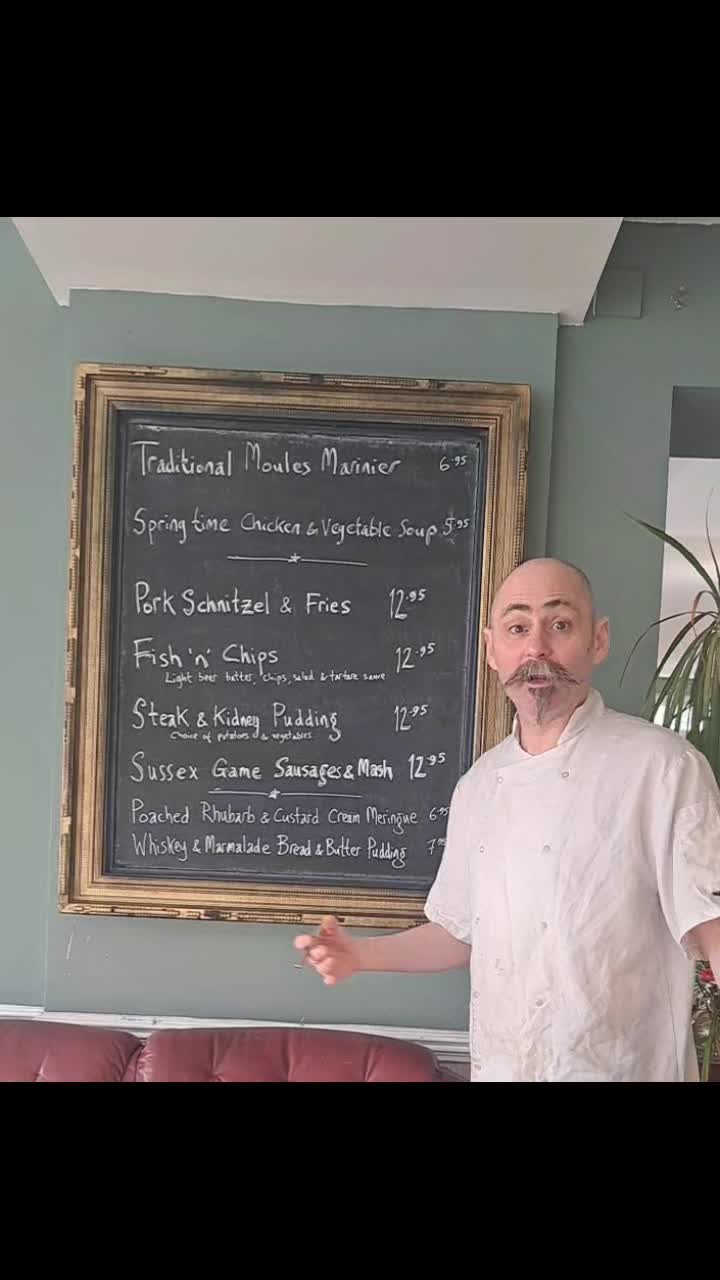 Traditional Moules Marinier 6.95
Spring time Chicken & Vegetable Soup 5.95
Pork Schnitzel & Fries 12.95
Fish 'n' Chips 12.95
Light beer batter, chips, salad & tartare sauce
Steak & Kidney Pudding 12.95
Choice of potatoes & vegetables
Sussex Game Sausages & Mash 12.95
Poached Rhubarb & Custard Cream Meringue 6.95
Whiskey & Marmalade Bread & Butter Pudding 7.95